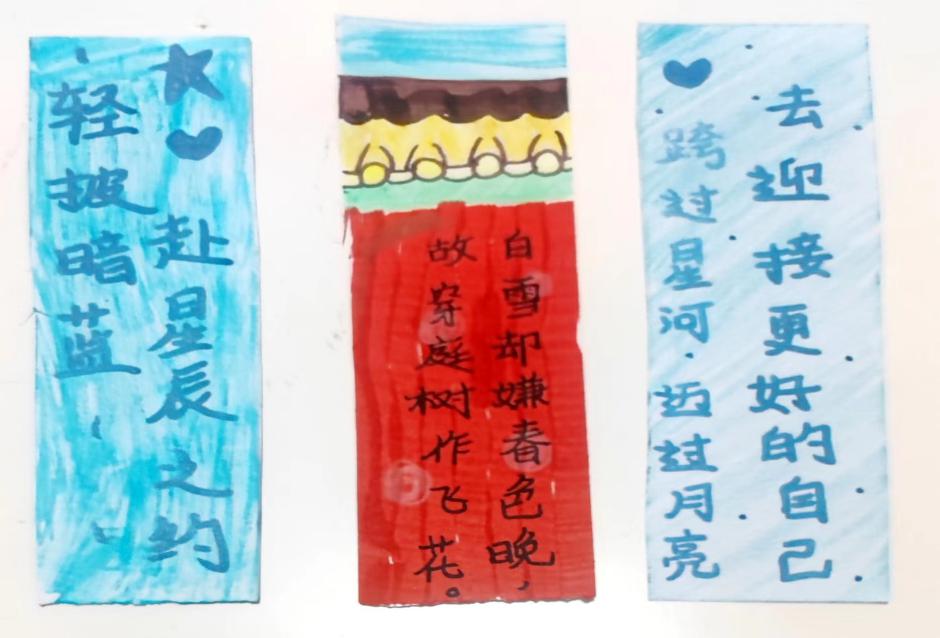 轻披暗蓝，
赴星辰之约
白雪却嫌春色晚，
故穿庭树作飞花。
跨过星河·迈过月亮
去迎接更好的自己